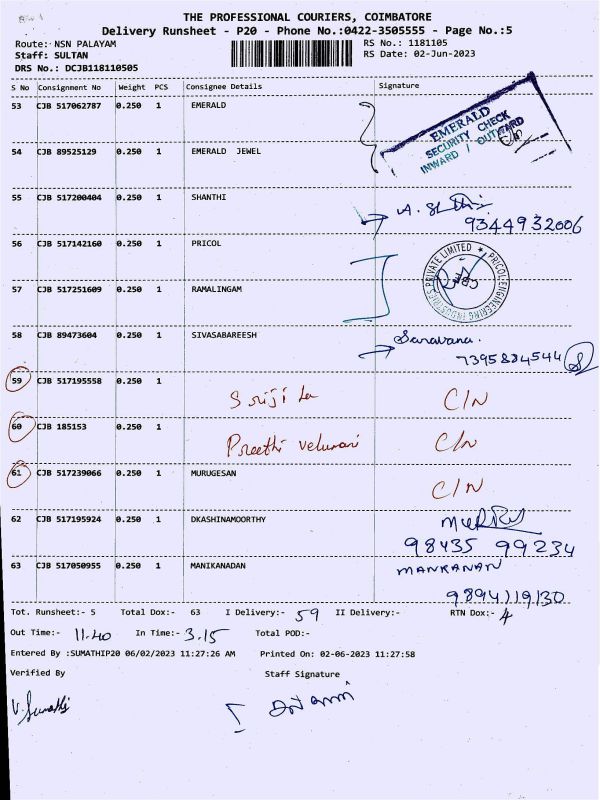 THE PROFESSIONAL COURIERS, COIMBATORE
Delivery Runsheet - P20 - Phone No.:0422-3505555 - Page No.:5
Route: NSN PALAYAM RS No.: 1181105
Staff: SULTAN RS Date: 02-Jun-2023
DRS No.: DCJB118110505
S No Consignment No Weight PCS Consignee Details Signature
53 CJB 517062787 0.250 1 EMERALD
EMERALD
SECURITY CHECK
INWARD / OUTWARD
54 CJB 89525129 0.250 1 EMERALD JEWEL
55 CJB 517200404 0.250 1 SHANTHI
9344932006
56 CJB 517142160 0.250 1 PRICOL
PRICOL ENGINEERING INDUSTRIES PRIVATE LIMITED
57 CJB 517251609 0.250 1 RAMALINGAM
58 CJB 89473604 0.250 1 SIVASABAREESH
Saravana.
7395884544
59 CJB 517195558 0.250 1 C/N
60 CJB 185153 0.250 1 Preethi C/N
61 CJB 517239066 0.250 1 MURUGESAN C/N
62 CJB 517195924 0.250 1 DKASHINAMOORTHY
98435 99234
63 CJB 517050955 0.250 1 MANIKANADAN MANKANAN
9894119130
Tot. Runsheet:- 5 Total Dox:- 63 I Delivery:- 59 II Delivery:- RTN Dox:- 4
Out Time:- 11.40 In Time:- 3.15 Total POD:-
Entered By :SUMATHIP20 06/02/2023 11:27:26 AM Printed On: 02-06-2023 11:27:58
Verified By Staff Signature
V. Sumathi